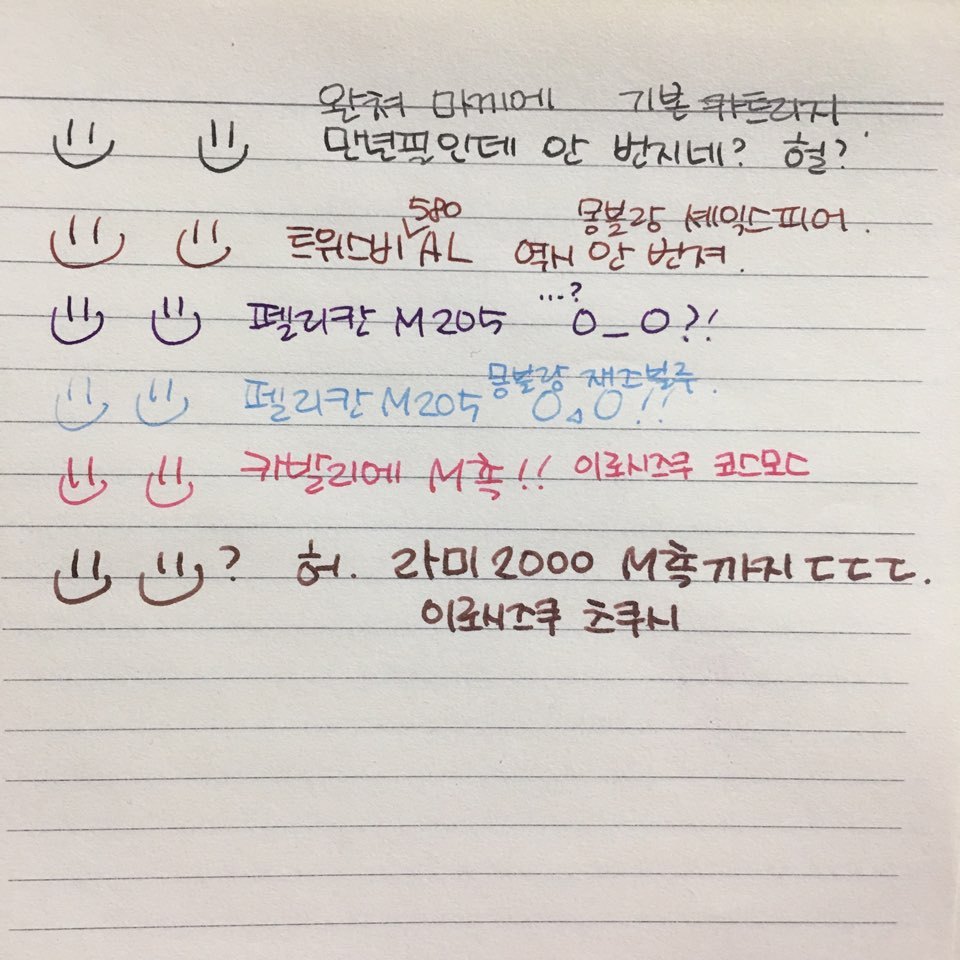 완쳐 마끼에 기본 캬트리지
만년필인데 안 번지네? 헐?
580 몽블랑 셰익스피어.
트위스비 AL 역시 안 번져.
...?
펠리칸 M205 O_O?!
몽블랑 쟁조블루.
펠리칸 M205 ㅇㅿㅇ!!
카발리에 M촉!! 이로시즈쿠 코스모스
? 허. 라미2000 M촉까지 ㄷㄷㄷ.
이로시즈쿠 츠쿠시